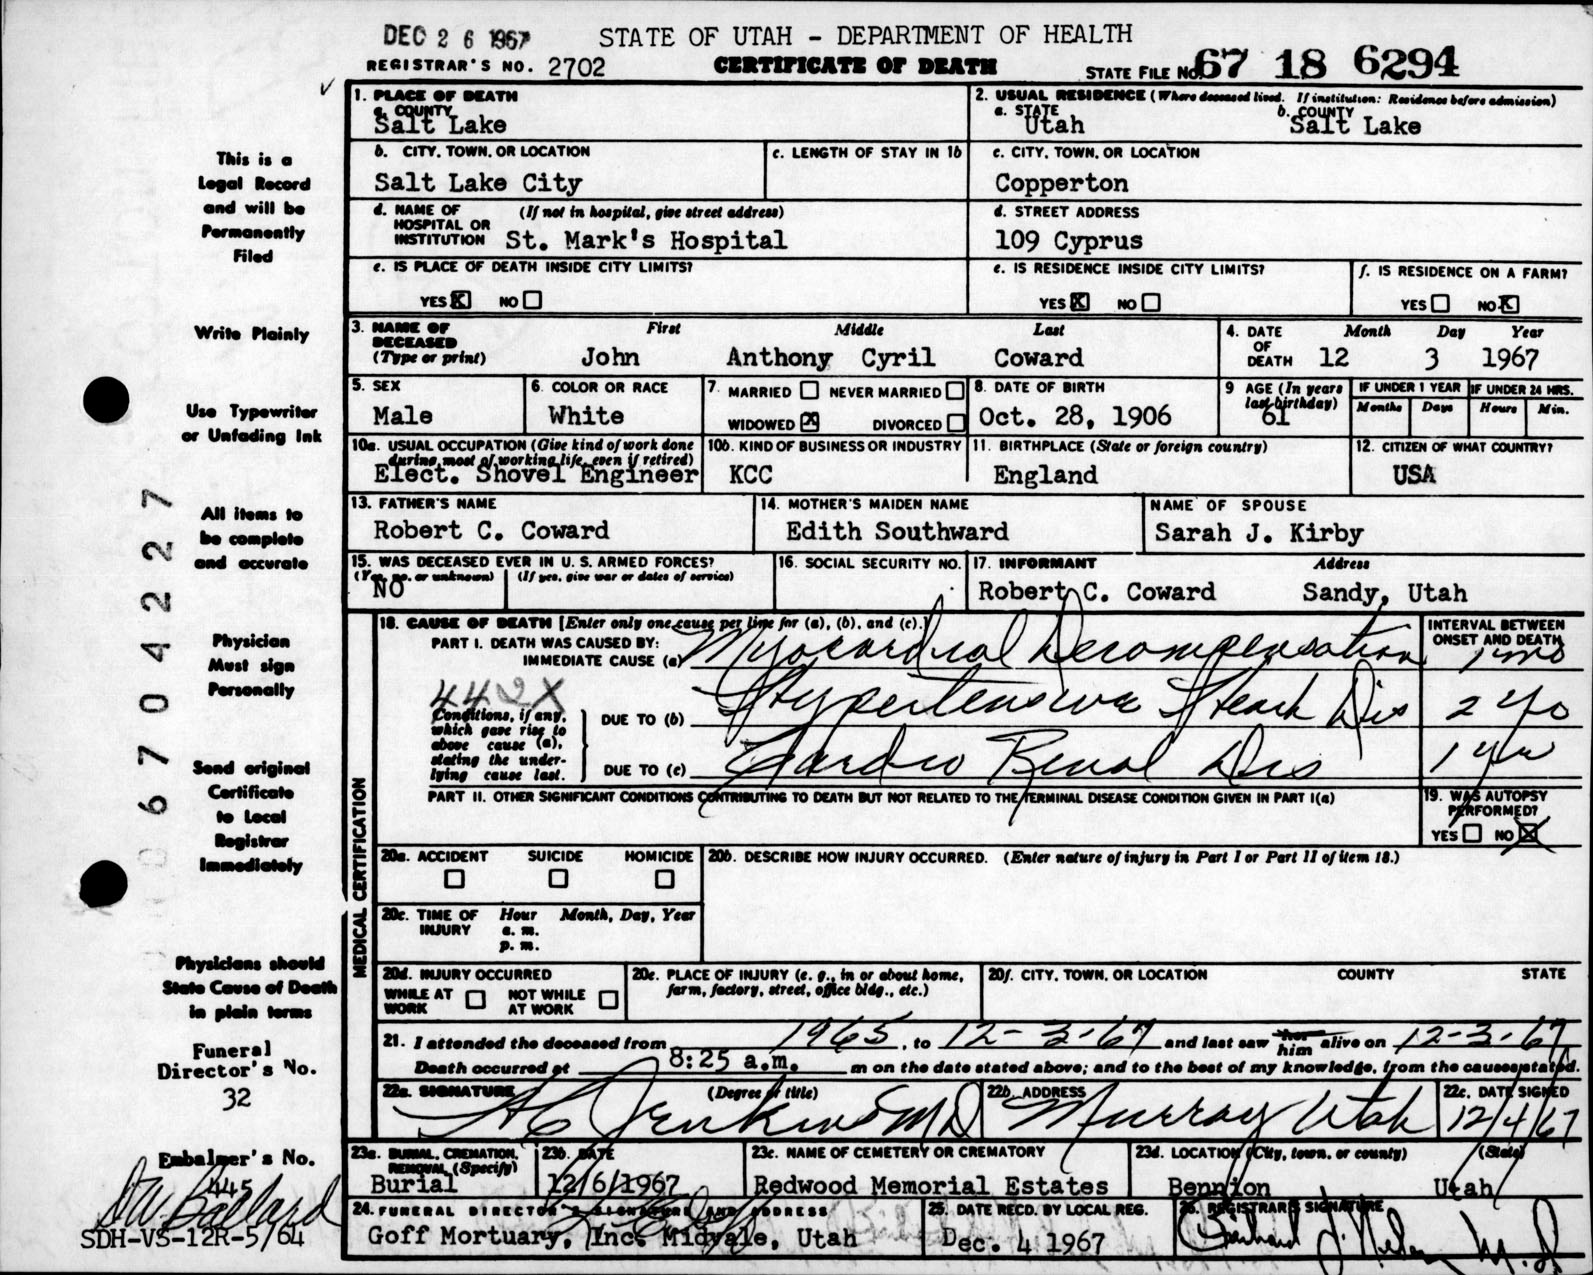 DEC 26 1967
STATE OF UTAH - DEPARTMENT OF HEALTH
REGISTRAR'S NO. 2702
CERTIFICATE OF DEATH
STATE FILE NO. 67 18 6294
1. PLACE OF DEATH
a. COUNTY
Salt Lake
2. USUAL RESIDENCE (Where deceased lived. If institution: Residence before admission)
a. STATE b. COUNTY
Utah Salt Lake
b. CITY, TOWN, OR LOCATION
Salt Lake City
c. LENGTH OF STAY IN 1b
c. CITY, TOWN, OR LOCATION
Copperton
d. NAME OF (If not in hospital, give street address)
HOSPITAL OR
INSTITUTION St. Mark's Hospital
d. STREET ADDRESS
109 Cyprus
e. IS PLACE OF DEATH INSIDE CITY LIMITS?
YES X NO
e. IS RESIDENCE INSIDE CITY LIMITS?
YES X NO
f. IS RESIDENCE ON A FARM?
YES NO X
3. NAME OF First Middle Last
DECEASED
(Type or print) John Anthony Cyril Coward
4. DATE Month Day Year
OF
DEATH 12 3 1967
5. SEX
Male
6. COLOR OR RACE
White
7. MARRIED NEVER MARRIED
WIDOWED X DIVORCED
8. DATE OF BIRTH
Oct. 28, 1906
9 AGE (In years
last birthday)
61
IF UNDER 1 YEAR
Months Days
IF UNDER 24 HRS.
Hours Min.
10a. USUAL OCCUPATION (Give kind of work done
during most of working life, even if retired)
Elect. Shovel Engineer
10b. KIND OF BUSINESS OR INDUSTRY
KCC
11. BIRTHPLACE (State or foreign country)
England
12. CITIZEN OF WHAT COUNTRY?
USA
13. FATHER'S NAME
Robert C. Coward
14. MOTHER'S MAIDEN NAME
Edith Southward
NAME OF SPOUSE
Sarah J. Kirby
15. WAS DECEASED EVER IN U. S. ARMED FORCES?
(Yes, no, or unknown) (If yes, give war or dates of service)
NO
16. SOCIAL SECURITY NO.
17. INFORMANT Address
Robert C. Coward Sandy, Utah
MEDICAL CERTIFICATION
18. CAUSE OF DEATH [Enter only one cause per line for (a), (b), and (c).]
PART I. DEATH WAS CAUSED BY:
IMMEDIATE CAUSE (a) Myocardial Decompensation
INTERVAL BETWEEN
ONSET AND DEATH
442X
Conditions, if any,
which gave rise to
above cause (a),
stating the under-
lying cause last.
DUE TO (b) Hypertensive Heart Dis
DUE TO (c) Cardio Renal Dis
PART II. OTHER SIGNIFICANT CONDITIONS CONTRIBUTING TO DEATH BUT NOT RELATED TO THE TERMINAL DISEASE CONDITION GIVEN IN PART I(a)
19. WAS AUTOPSY
PERFORMED?
YES NO X
20a. ACCIDENT SUICIDE HOMICIDE
20b. DESCRIBE HOW INJURY OCCURRED. (Enter nature of injury in Part I or Part II of item 18.)
20c. TIME OF Hour Month, Day, Year
INJURY a. m.
p. m.
20d. INJURY OCCURRED
WHILE AT WORK NOT WHILE AT WORK
20e. PLACE OF INJURY (e. g., in or about home,
farm, factory, street, office bldg., etc.)
20f. CITY, TOWN, OR LOCATION COUNTY STATE
21. I attended the deceased from 1965, to 12-3-67 and last saw her him alive on 12-3-67
Death occurred at 8:25 a.m. m on the date stated above; and to the best of my knowledge, from the causes stated.
22a. SIGNATURE (Degree or title)
Jenkins MD
22b. ADDRESS
Murray Utah
22c. DATE SIGNED
12/4/67
23a. BURIAL, CREMATION,
REMOVAL (Specify)
Burial
23b. DATE
12/6/1967
23c. NAME OF CEMETERY OR CREMATORY
Redwood Memorial Estates
23d. LOCATION (City, town, or county) (State)
Bennion Utah
24. FUNERAL DIRECTOR'S SIGNATURE AND ADDRESS
Goff Mortuary, Inc. Midvale, Utah
25. DATE RECD. BY LOCAL REG.
Dec. 4 1967
26. REGISTRAR'S SIGNATURE
This is a
Legal Record
and will be
Permanently
Filed
Write Plainly
Use Typewriter
or Unfading Ink
All items to
be complete
and accurate
Physician
Must sign
Personally
Send original
Certificate
to Local
Registrar
Immediately
Physicians should
State Cause of Death
in plain terms
Funeral
Director's No.
32
Embalmer's No.
445
SDH-VS-12R-5/64
6704227